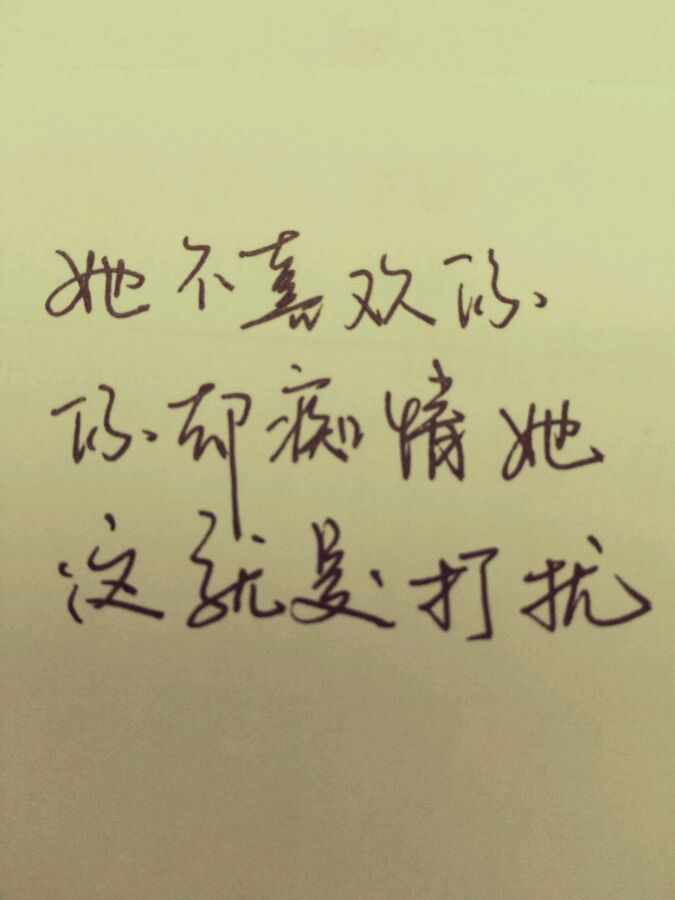 她不喜欢你
你却痴情她
这就是打扰